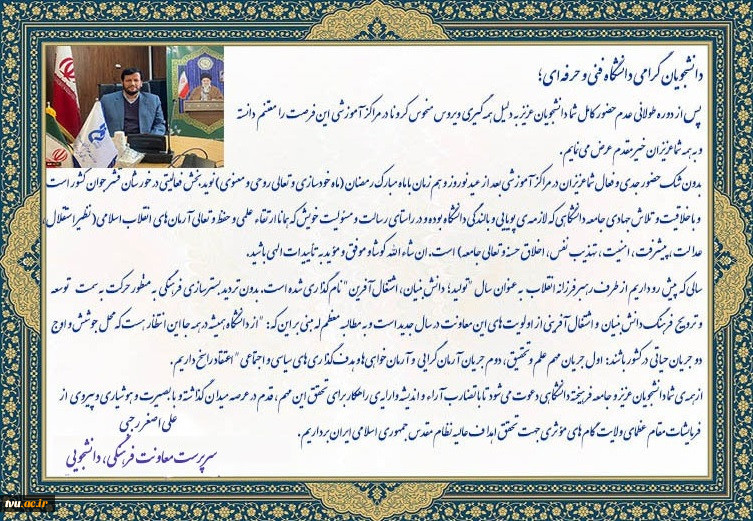 دانشجویان گرامی دانشگاه فنی و حرفه ای؛
پس از دوره طولانی عدم حضور کامل شما دانشجویان عزیز به دلیل همه گیری ویروس منحوس کرونا در مراکز آموزشی این فرصت را مغتنم دانسته
و به همه شما عزیزان خیرمقدم عرض می نمایم.
بدون شک حضور جدی و فعال شما عزیزان در مراکز آموزشی بعد از عید نوروز و هم زمان با ماه مبارک رمضان (ماه خودسازی و تعالی روحی و معنوی) نوید بخش فعالیتی درخور شان قشر جوان کشور است
و با خلاقیت و تلاش جهادی جامعه دانشگاهی که لازمه ی پویایی و بالندگی دانشگاه بوده و در راستای رسالت و مسئولیت خویش که همانا ارتقاء علمی و حفظ و تعالی آرمان های انقلاب اسلامی (نظیر استقلال،
عدالت، پیشرفت، امنیت، تهذیب نفس، اخلاق حسنه و تعالی جامعه) است. ان شاء الله کوشا و موفق و موید به تأییدات الهی باشید.
سالی که پیش رو داریم از طرف رهبر فرزانه انقلاب به عنوان سال "تولید؛ دانش بنیان، اشتغال آفرین" نام گذاری شده است. بدون تردید بسترسازی فرهنگی به منظور حرکت به سمت توسعه
و ترویج فرهنگ دانش بنیان و اشتغال آفرینی از اولویت های این معاونت در سال جدید است و به مطالبه معظم له مبنی بر این که: "از دانشگاه همیشه در همه جا این انتظار هست که محل جوشش و اوج
دو جریان حیاتی در کشور باشند: اول جریان مهم علم و تحقیق، دوم جریان آرمان گرایی و آرمان خواهی ها و هدف گذاری های سیاسی و اجتماعی" اعتقاد راسخ داریم.
از همه ی شما دانشجویان عزیز و جامعه فرهیخته دانشگاهی دعوت می شود تا با تضارب آراء و اندیشه و ارایه ی راهکار برای تحقق این مهم، قدم در عرصه میدان گذاشته و با بصیرت و هوشیاری و پیروی از
فرمایشات مقام عظمای ولایت گام های مؤثری جهت تحقق اهداف عالیه نظام مقدس جمهوری اسلامی ایران برداریم.
علی اصغر رجبی
سرپرست معاونت فرهنگی، دانشجویی
tvu.ac.ir